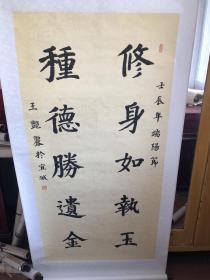 壬辰年端陽節
修身如執玉
種德勝遺金
王艷麗於宜城